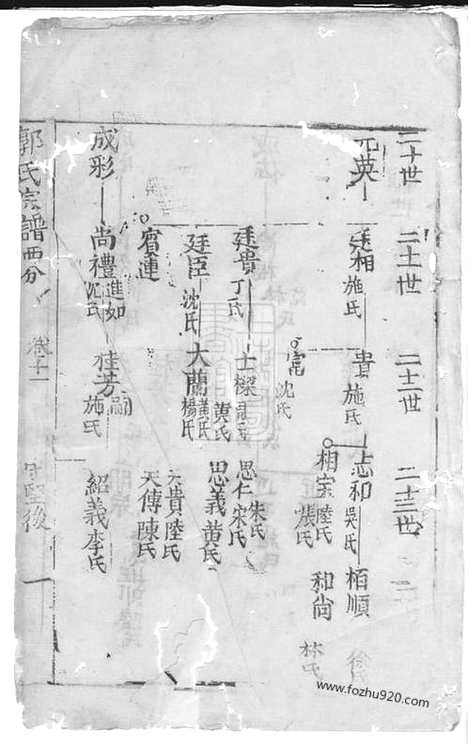 二十世 二十一世 二十二世 二十三世
元英 廷相 施氏 貴 施氏 志和 吳氏 栢順
富 沈氏 相宗 陸氏 張氏 和尚 林氏
廷貴 丁氏 士樑 黃氏 思仁 宋氏 朱氏
思義 黃氏
廷臣 沈氏 大蘭 楊氏 元貴 陸氏
天傳 陳氏
賓連
成彩 尚禮 進如 沈氏 桂芳 嗣 施氏 紹義 李氏
郭氏宗譜西分 卷十一 後
www.fozhu920.com